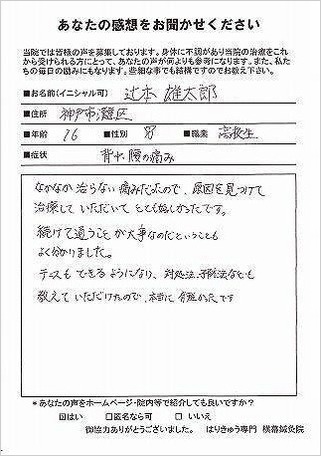 あなたの感想をお聞かせください
当院では皆様の声を募集しております。身体に不調があり当院の治療をこれ
から受けられる方にとって、あなたの声が何よりも参考になります。また、私た
ちの毎日の励みにもなります。些細な事でも結構ですのでお教え下さい。
■お名前(イニシャル可) 辻本 雄太郎
■住所 神戸市灘区
■年齢 16 ■性別 男 ■職業 高校生
■症状 背中、腰の痛み
なかなか治らない痛みだったので、原因を見つけて
治療していただいてとても嬉しかったです。
続けて通うことが大事なのだということも
よく分かりました。
テニスもできるようになり、対処法、予防法なども
教えていただけたので、本当に有難かったです
*あなたの声をホームページ・院内等で紹介しても良いですか?
☑はい □匿名なら可 □いいえ
御協力ありがとうございました。 はりきゅう専門 横幕鍼灸院